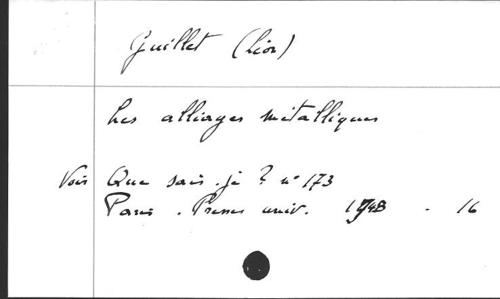 Guillet (Léon)
Les alliages métalliques
Voir Que sais-je ? n° 173
Paris. Presses univ. 1948 - 16